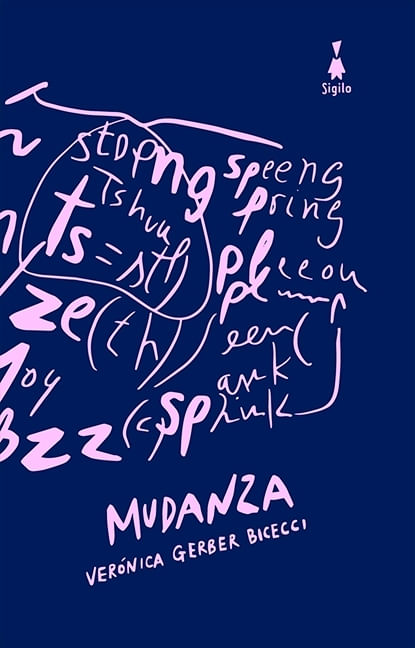 Sigilo
stopng speeng
Tshuul pring
ts = sth
pleeou
ze (th)
een (
ank
oy
bzz (c) sp hink
MUDANZA
VERÓNICA GERBER BICECCI